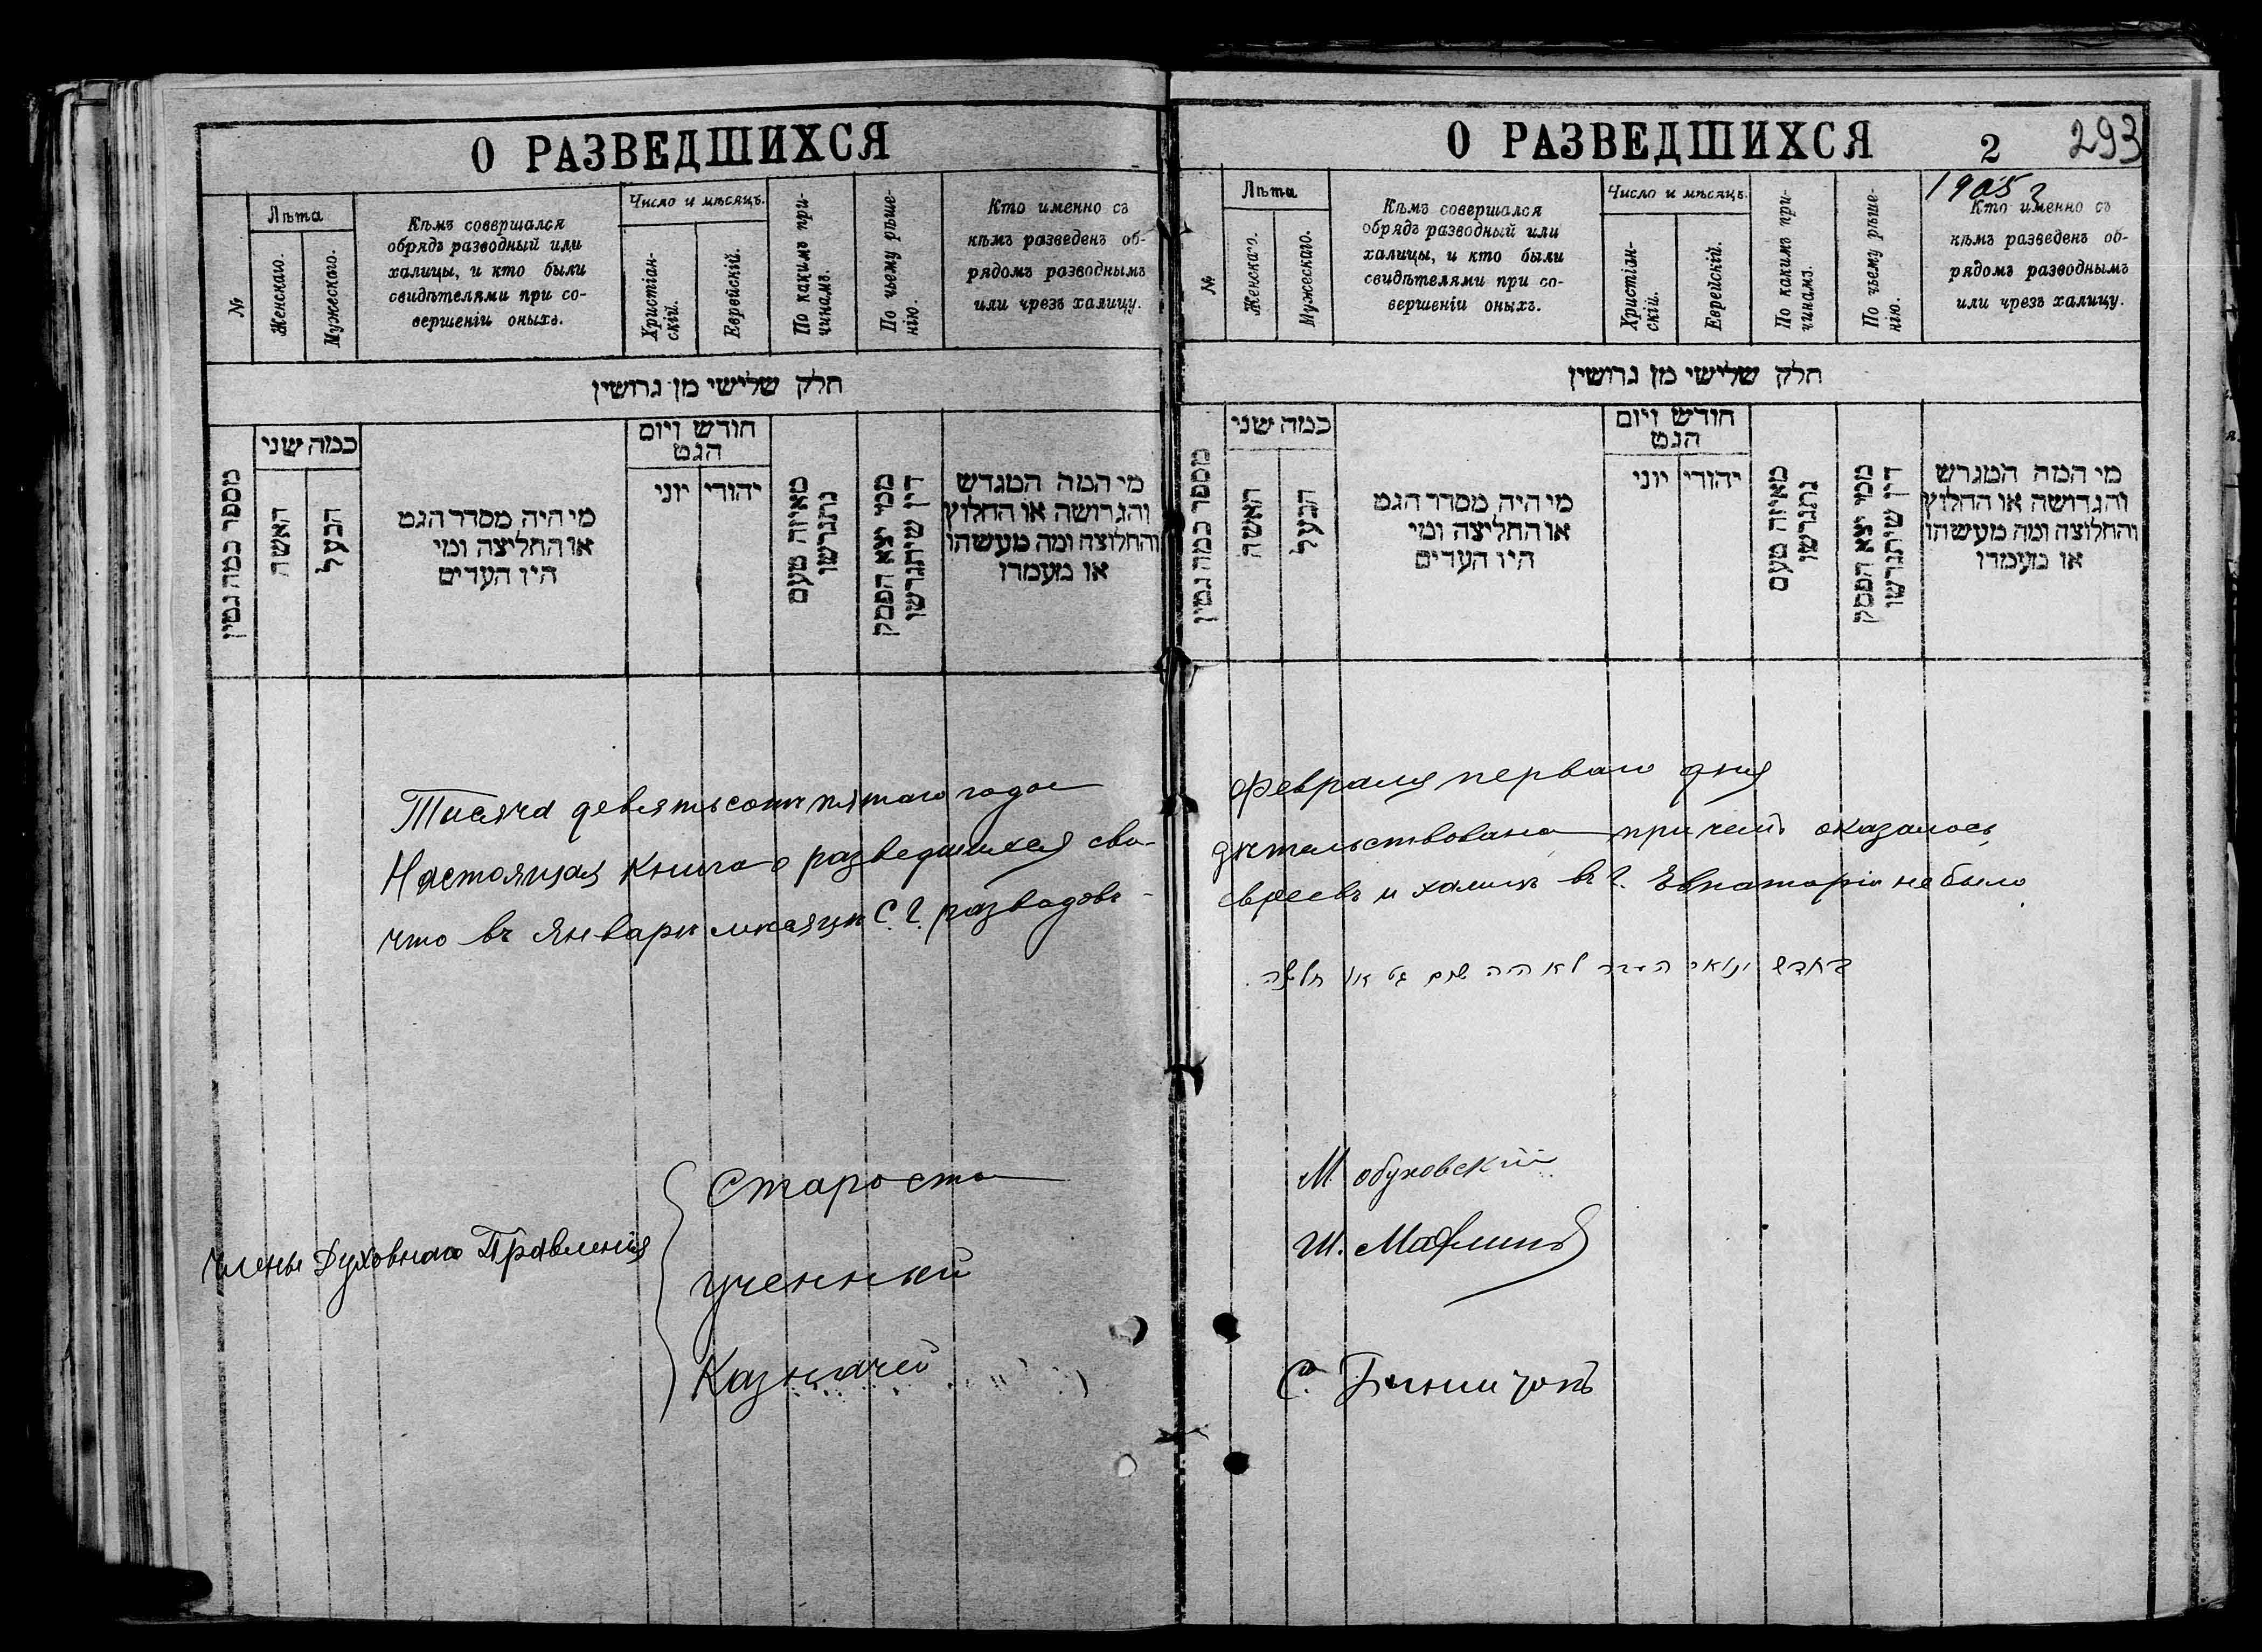 О РАЗВЕДШИХСЯ
№
Лѣта
Женскаго.
Мужескаго.
Кѣмъ совершался
обрядъ разводный или
халицы, и кто были
свидѣтелями при со-
вершеніи оныхъ.
Число и мѣсяцъ.
Христіан-
скій.
Еврейскій.
По какимъ при-
чинамъ.
По чьему рѣше-
нію.
Кто именно съ
кѣмъ разведенъ об-
рядомъ разводнымъ
или чрезъ халицу.
חלק שלישי מן גרושין
מספר כמה גטין
כמה שני
האשה
הבעל
מי היה מסדר הגט
או החליצה ומי
היו העדים
חודש ויום
הגט
יהודי
יוני
מאיזה טעם
נתגרשו
ממי יצא הפסק
דין שיתגרשו
מי המה המגרש
והגרושה או החלוץ
והחלוצה ומה מעשהו
או מעמדו
Тисяча девятьсотъ пятаго года
Настоящая книга о разведшихся сви-
что въ Январѣ мѣсяцѣ С. Г. разводовъ
Члены Духовнаго Правленія
Староста
Ученный
Казначей
О РАЗВЕДШИХСЯ
2
293
1905 г
№
Лѣта
Женскаго.
Мужескаго.
Кѣмъ совершался
обрядъ разводный или
халицы, и кто были
свидѣтелями при со-
вершеніи оныхъ.
Число и мѣсяцъ.
Христіан-
скій.
Еврейскій.
По какимъ при-
чинамъ.
По чьему рѣше-
нію.
Кто именно съ
кѣмъ разведенъ об-
рядомъ разводнымъ
или чрезъ халицу.
חלק שלישי מן גרושין
מספר כמה גטין
כמה שני
האשה
הבעל
מי היה מסדר הגט
או החליצה ומי
היו העדים
חודש ויום
הגט
יהודי
יוני
מאיזה טעם
נתגרשו
ממי יצא הפסק
דין שיתגרשו
מי המה המגרש
והגרושה או החלוץ
והחלוצה ומה מעשהו
או מעמדו
Февраля перваго дня
дѣтельствована при чемъ оказалось,
евреевъ и халицъ въ г. Евпаторіи не было
בחדש ינואר לא היה שום גט או חליצה
М. Обуховскій
Ш. Мафлинъ
С.